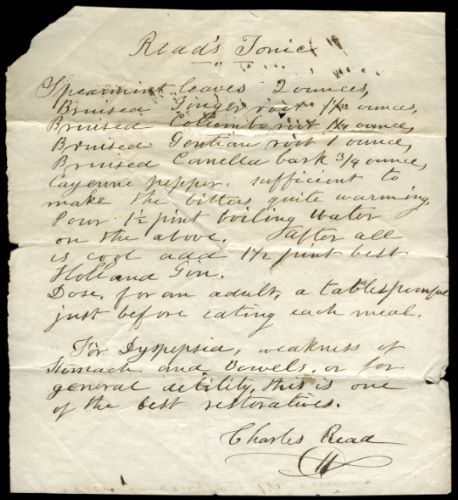 Read's Tonic
Spearmint leaves 2 ounces,
Bruised Ginger root 1½ ounces,
Bruised Columbo root 1½ ounces,
Bruised Gentian root 1 ounce,
Bruised Canella bark 3/4 ounce,
Cayenne pepper, sufficient to
make the bitters quite warming.
Pour 1½ pint boiling water
on the above. After all
is cool add 1½ pint best
Holland Gin.
Dose, for an adult, a tablespoonful
just before eating each meal.
For Dyspepsia, weakness of
Stomach and Bowels, or for
general debility, this is one
of the best restoratives.
Charles Read